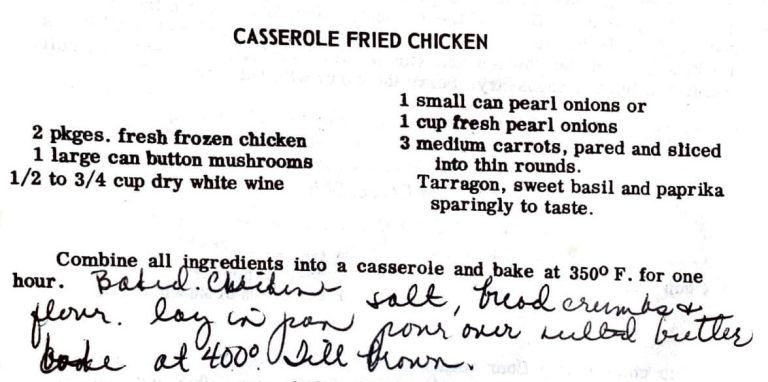 CASSEROLE FRIED CHICKEN
2 pkges. fresh frozen chicken
1 large can button mushrooms
1/2 to 3/4 cup dry white wine
1 small can pearl onions or
1 cup fresh pearl onions
3 medium carrots, pared and sliced
into thin rounds.
Tarragon, sweet basil and paprika
sparingly to taste.
Combine all ingredients into a casserole and bake at 350º F. for one
hour. Baked. Chicken salt, bread crumbs &
flour. lay in pan pour over melted butter
bake at 400º. Till brown.